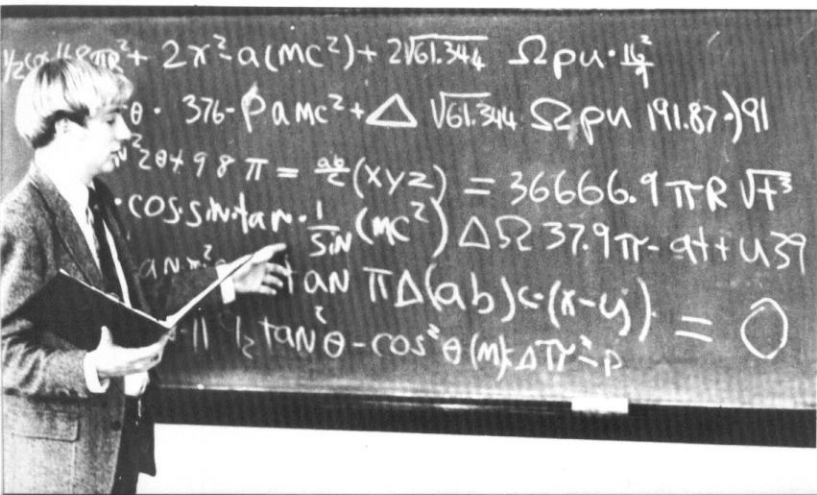 + 2x²-a(mc²)+ 2√61.344 Ωpu·16²/9
θ · 376-ρamc²+△ √61.344 Ωpu 191.87·)91
²2θ+98π = ab/c(xyz) = 36666.9πR√t³
·cos·sin·tan·1/sin(mc²)ΔΩ37.9π-at+u39
tan πΔ(ab)c·(x-y) = 0
½tan²θ-cos²θ(m)